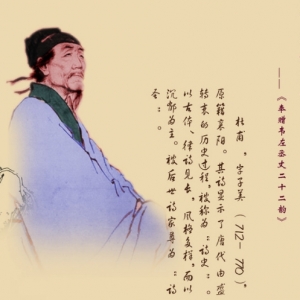 ——《奉赠韦左丞丈二十二韵》
杜甫，字子美（712—770)，
原籍襄阳。其诗显示了唐代由盛
转衰的历史过程，被称为“诗史”。
以古体、律诗见长，风格多样，而以
沉郁为主。被后世诗家尊为“诗
圣”。